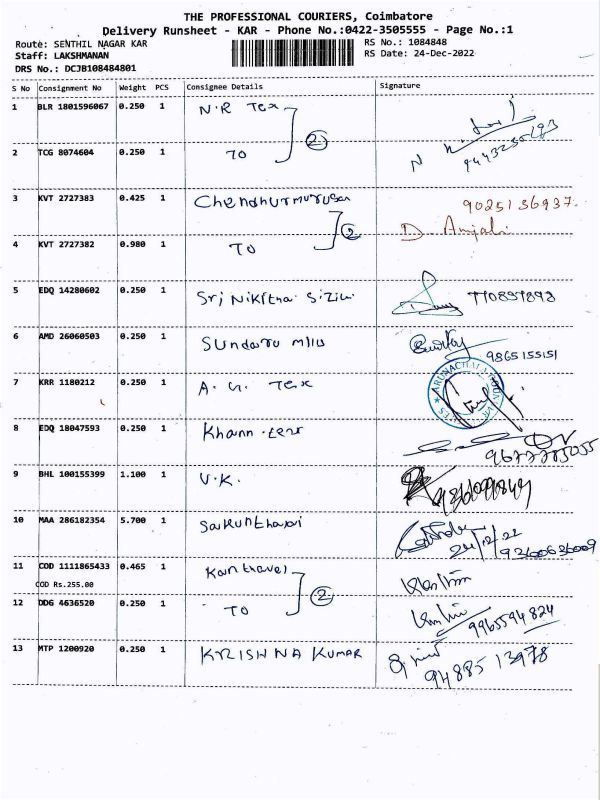 THE PROFESSIONAL COURIERS, Coimbatore
Delivery Runsheet - KAR - Phone No.:0422-3505555 - Page No.:1
Route: SENTHIL NAGAR KAR
RS No.: 1084848
Staff: LAKSHMANAN
RS Date: 24-Dec-2022
DRS No.: DCJB108484801
S No Consignment No Weight PCS Consignee Details Signature
1 BLR 1801596067 0.250 1 N.R Tex
2 TCG 8074604 0.250 1 TO 2
3 KVT 2727383 0.425 1 Chendhurmurugan 9025136937
4 KVT 2727382 0.980 1 TO 2 D. Anjali
5 EDQ 14280602 0.250 1 Sri Nikitha
6 AMD 26060503 0.250 1 9865155151
7 KRR 1180212 0.250 1 Tex
8 EDQ 18047593 0.250 1 Khann
9 BHL 100155399 1.100 1 V.K.
10 MAA 286182354 5.700 1 24/12/22
11 COD 1111865433 0.465 1
COD Rs.255.00
12 DDG 4636520 0.250 1 TO 2 9965594824
13 MTP 1200920 0.250 1 KRISHNA KUMAR 9488513978